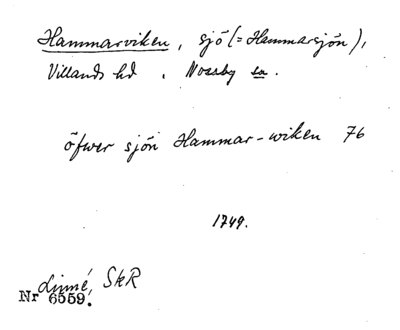 Hammarviken, sjö (= Hammarsjön),
Villands hd. Nosaby sn.
öfwer sjön Hammar-wiken 76
1749.
Linné, SkR
Nr 6559.